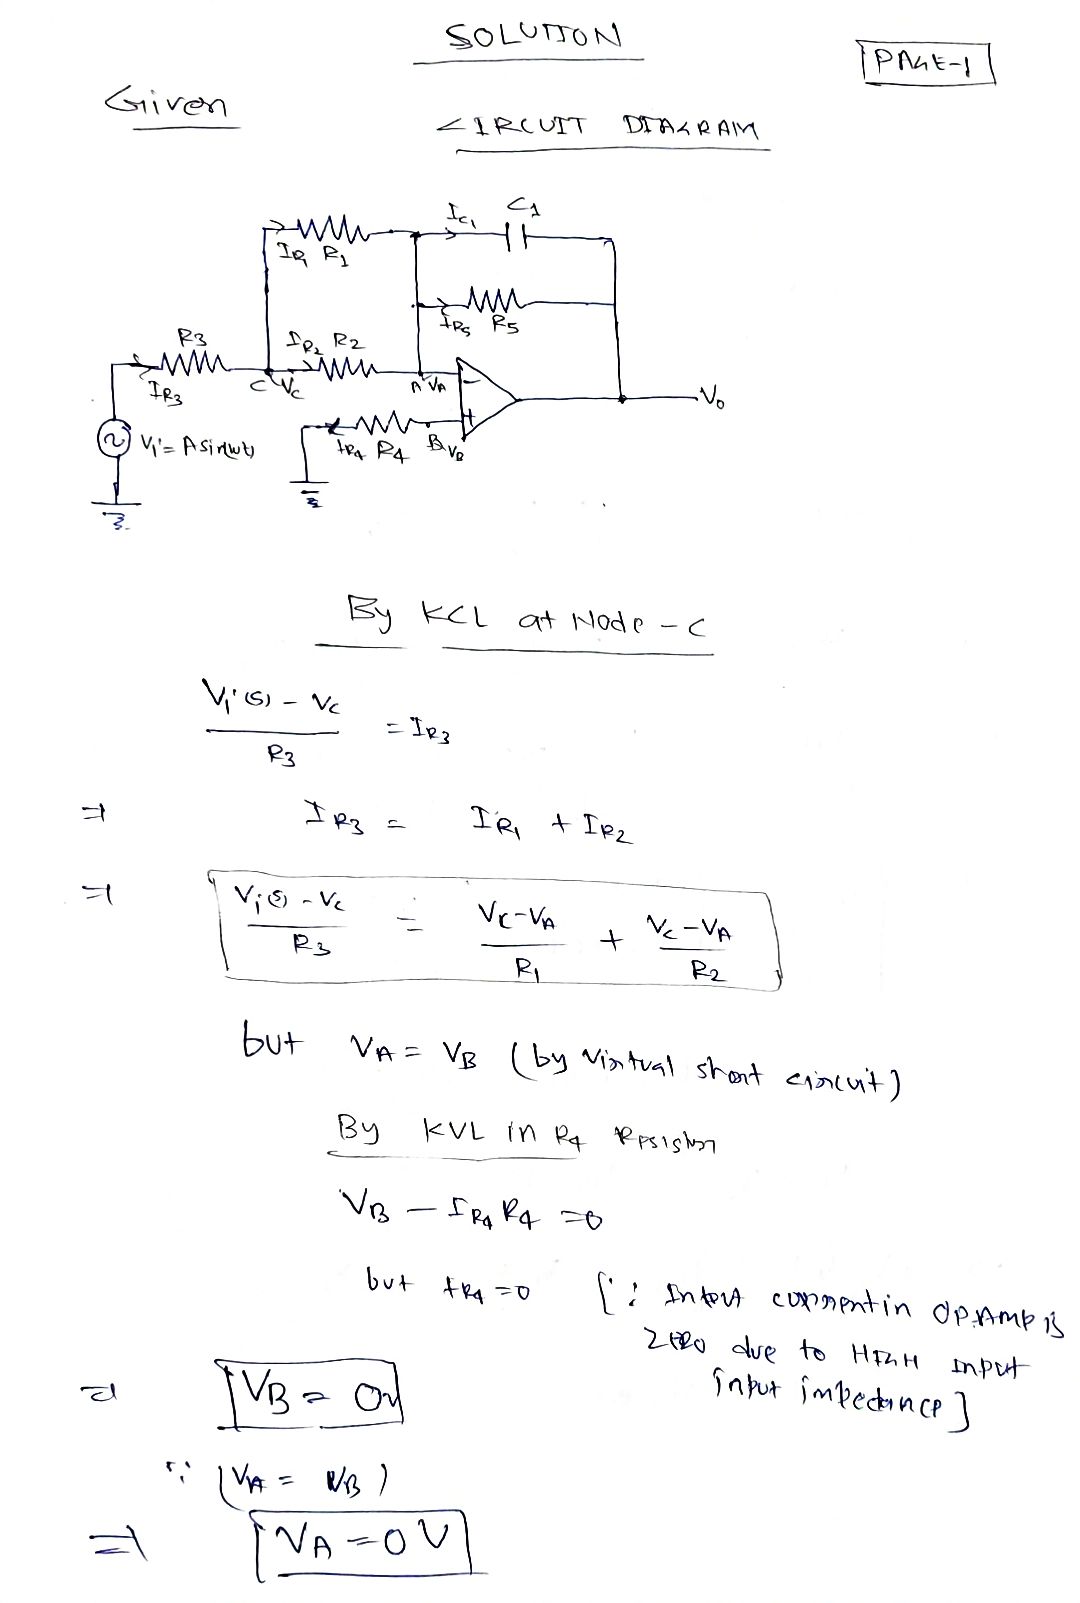 SOLUTION
PAGE-1
Given
CIRCUIT DIAGRAM
IC1 C1
IR1 R1
IR5 R5
R3 IR2 R2
IR3 C VC A VA
Vi = A sin(wt) IR4 R4 B VB
- + Vo
By KCL at Node - C
Vi(s) - VC / R3 = IR3
⇒ IR3 = IR1 + IR2
⇒ Vi(s) - VC / R3 = VC - VA / R1 + VC - VA / R2
but VA = VB (by virtual short circuit)
By KVL in R4 Resistor
VB - IR4 R4 = 0
but IR4 = 0 [∵ Input current in OP.AMP is
zero due to HIGH INPUT
input impedance]
⇒ VB = 0V
∵ (VA = VB)
⇒ VA = 0V